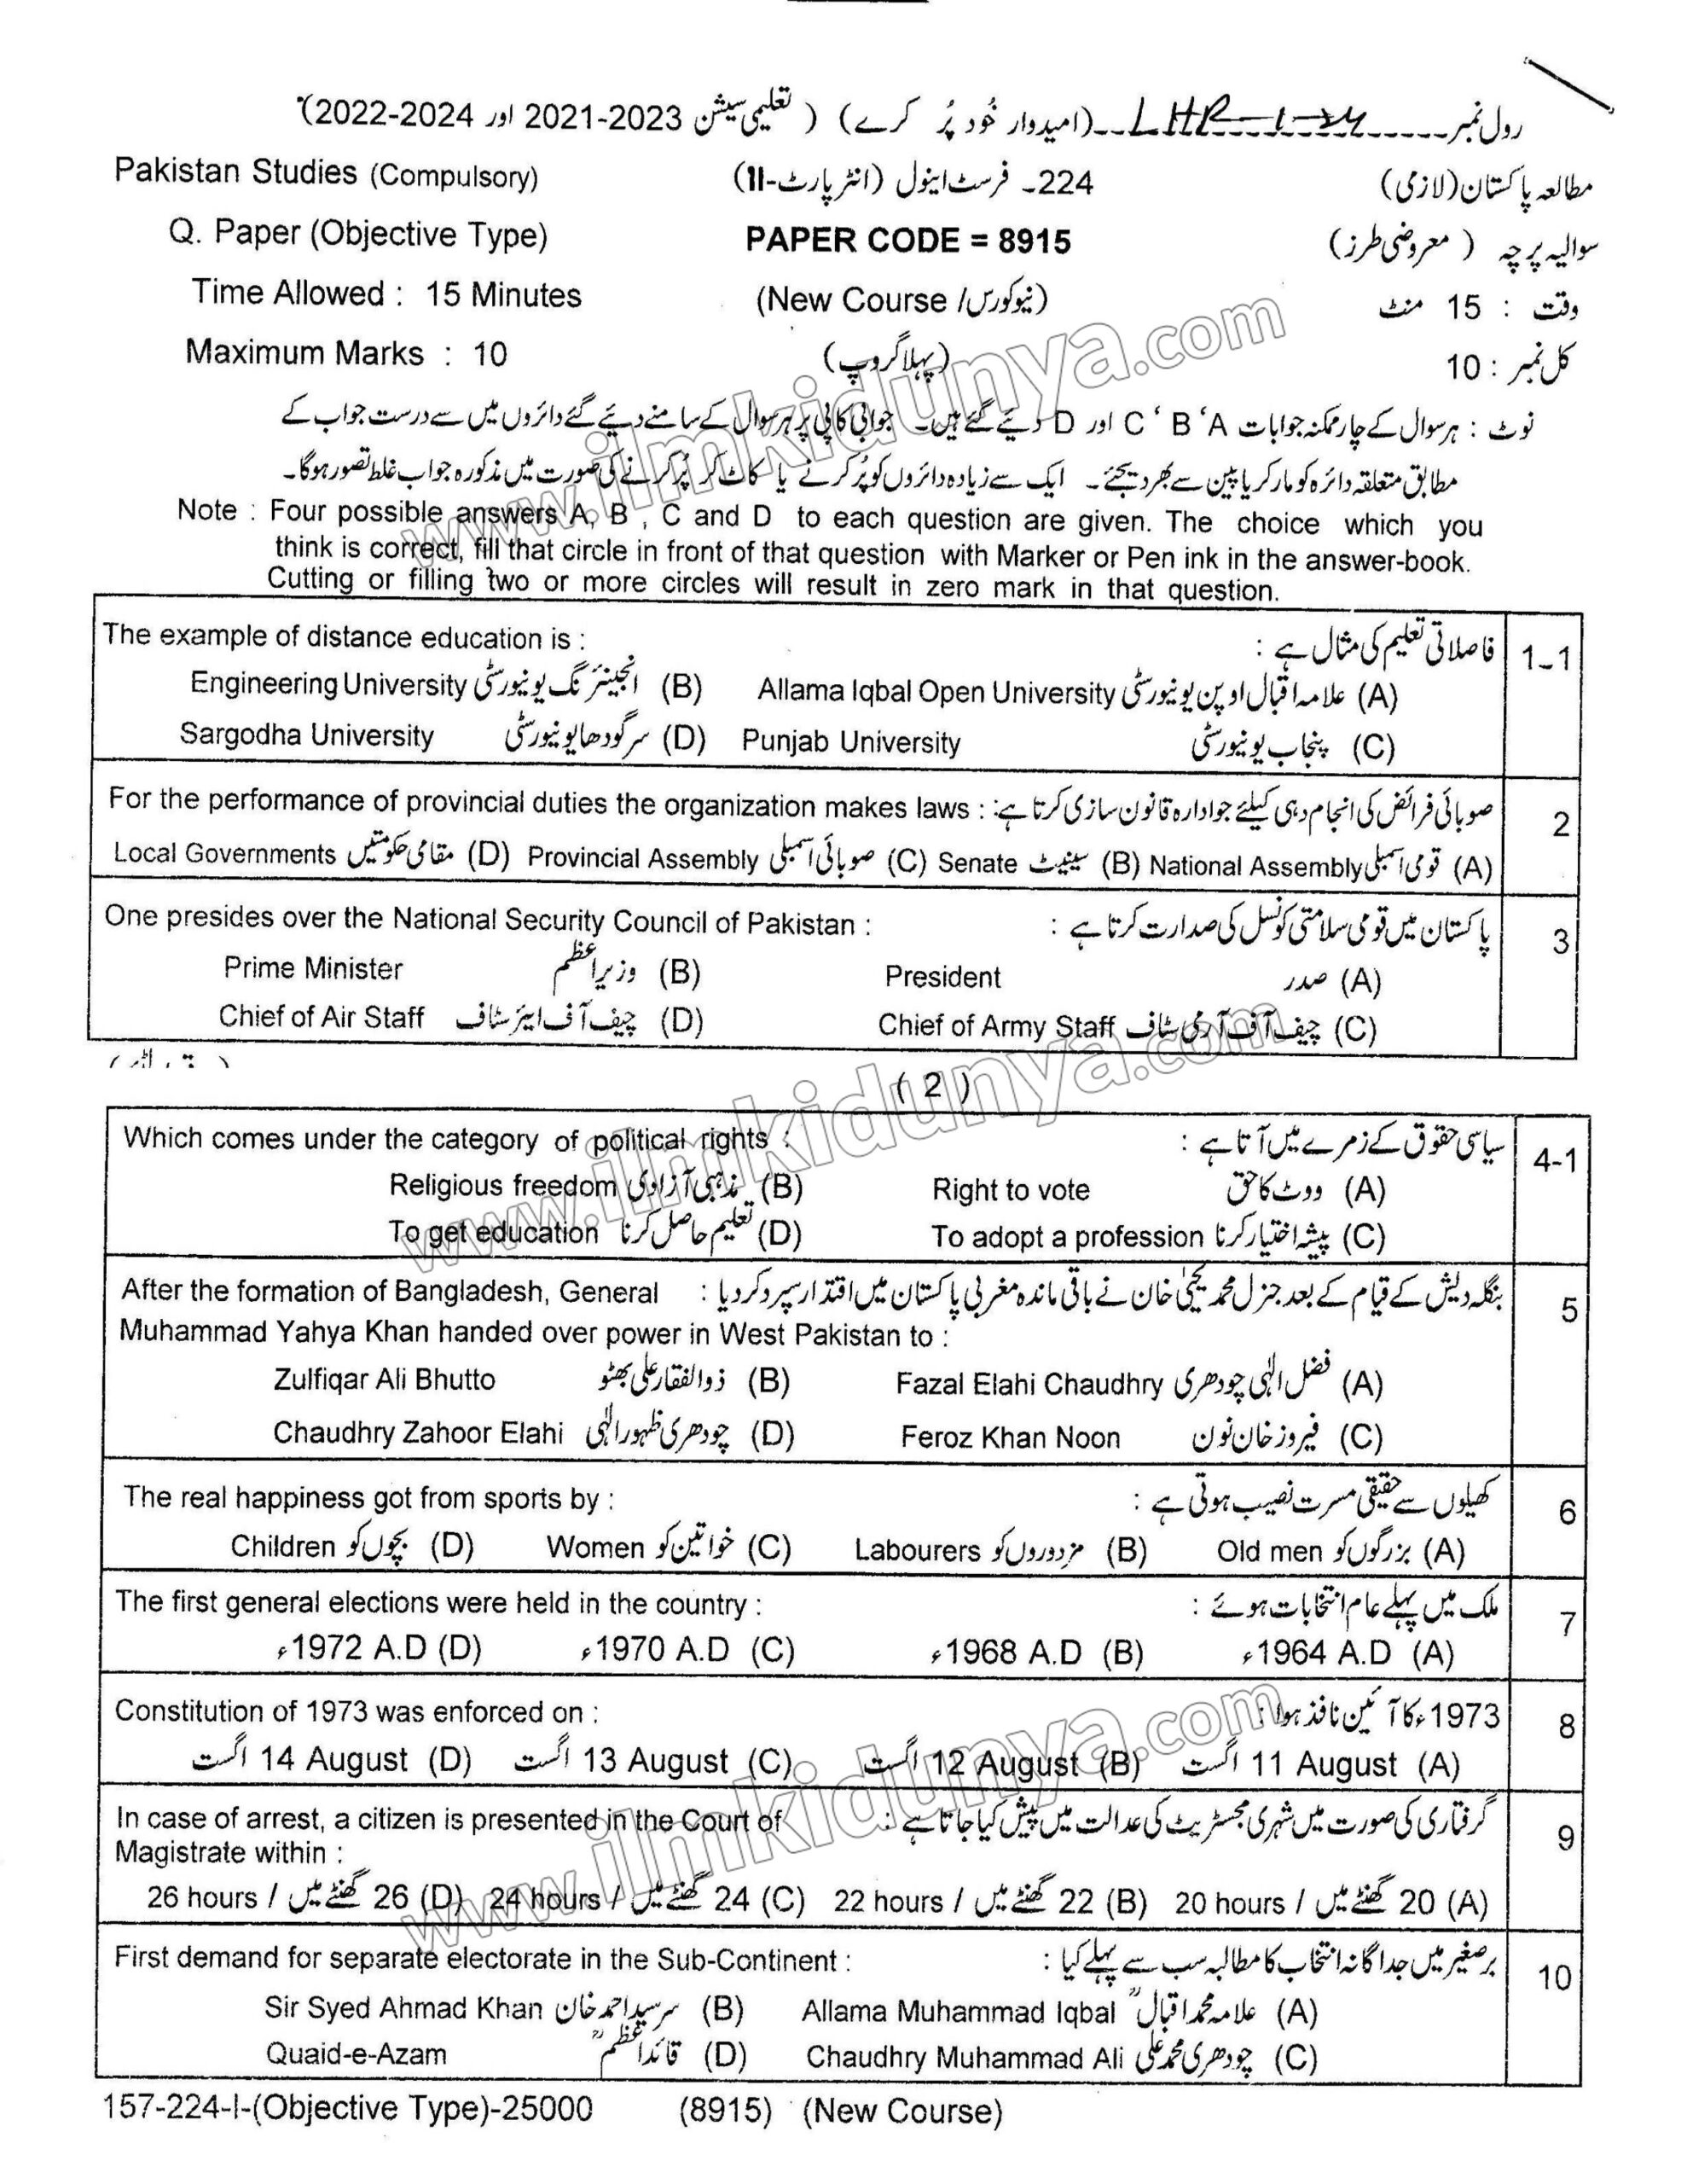 رول نمبر LHR-1-24 (امیدوار خُود پُر کرے) (تعلیمی سیشن 2021-2023 اور 2022-2024)
Pakistan Studies (Compulsory) 224۔ فرسٹ اینول (انٹرپارٹ-II) مطالعہ پاکستان (لازمی)
Q. Paper (Objective Type) PAPER CODE = 8915 سوالیہ پرچہ (معروضی طرز)
Time Allowed : 15 Minutes (New Course / نیو کورس) وقت : 15 منٹ
Maximum Marks : 10 (پہلا گروپ) کل نمبر : 10
نوٹ : ہر سوال کے چار ممکنہ جوابات A ‘ B ‘ C اور D دیے گئے ہیں۔ جوابی کاپی پر ہر سوال کے سامنے دیئے گئے دائروں میں سے درست جواب کے
مطابق متعلقہ دائرہ کو مارکر یا پین سے بھر دیجئے۔ ایک سے زیادہ دائروں کو پُر کرنے یا کاٹ کر پُر کرنے کی صورت میں مذکورہ جواب غلط تصور ہوگا۔
Note : Four possible answers A, B , C and D to each question are given. The choice which you
think is correct, fill that circle in front of that question with Marker or Pen ink in the answer-book.
Cutting or filling two or more circles will result in zero mark in that question.
The example of distance education is : فاصلاتی تعلیم کی مثال ہے : 1-1
Engineering University انجینئرنگ یونیورسٹی (B) Allama Iqbal Open University علامہ اقبال اوپن یونیورسٹی (A)
Sargodha University سرگودھا یونیورسٹی (D) Punjab University پنجاب یونیورسٹی (C)
For the performance of provincial duties the organization makes laws : صوبائی فرائض کی انجام دہی کیلئے جو ادارہ قانون سازی کرتا ہے : 2
Local Governments مقامی حکومتیں (D) Provincial Assembly صوبائی اسمبلی (C) Senate سینیٹ (B) National Assembly قومی اسمبلی (A)
One presides over the National Security Council of Pakistan : پاکستان میں قومی سلامتی کونسل کی صدارت کرتا ہے : 3
Prime Minister وزیراعظم (B) President صدر (A)
Chief of Air Staff چیف آف ایئر سٹاف (D) Chief of Army Staff چیف آف آرمی سٹاف (C)
( 2 )
Which comes under the category of political rights : سیاسی حقوق کے زمرے میں آتا ہے : 4-1
Religious freedom مذہبی آزادی (B) Right to vote ووٹ کا حق (A)
To get education تعلیم حاصل کرنا (D) To adopt a profession پیشہ اختیار کرنا (C)
After the formation of Bangladesh, General بنگلہ دیش کے قیام کے بعد جنرل محمد یحییٰ خان نے باقی ماندہ مغربی پاکستان میں اقتدار سپرد کر دیا : 5
Muhammad Yahya Khan handed over power in West Pakistan to :
Zulfiqar Ali Bhutto ذوالفقار علی بھٹو (B) Fazal Elahi Chaudhry فضل الٰہی چودھری (A)
Chaudhry Zahoor Elahi چودھری ظہور الٰہی (D) Feroz Khan Noon فیروز خان نون (C)
The real happiness got from sports by : کھیلوں سے حقیقی مسرت نصیب ہوتی ہے : 6
Children بچوں کو (D) Women خواتین کو (C) Labourers مزدوروں کو (B) Old men بزرگوں کو (A)
The first general elections were held in the country : ملک میں پہلے عام انتخابات ہوئے : 7
1972 A.D ء (D) 1970 A.D ء (C) 1968 A.D ء (B) 1964 A.D ء (A)
Constitution of 1973 was enforced on : 1973ء کا آئین نافذ ہوا : 8
14 August اگست (D) 13 August اگست (C) 12 August اگست (B) 11 August اگست (A)
In case of arrest, a citizen is presented in the Court of گرفتاری کی صورت میں شہری مجسٹریٹ کی عدالت میں پیش کیا جاتا ہے : 9
Magistrate within :
26 hours / 26 گھنٹے میں (D) 24 hours / 24 گھنٹے میں (C) 22 hours / 22 گھنٹے میں (B) 20 hours / 20 گھنٹے میں (A)
First demand for separate electorate in the Sub-Continent : برصغیر میں جداگانہ انتخاب کا مطالبہ سب سے پہلے کیا : 10
Sir Syed Ahmad Khan سرسید احمد خان (B) Allama Muhammad Iqbal علامہ محمد اقبالؒ (A)
Quaid-e-Azam قائداعظمؒ (D) Chaudhry Muhammad Ali چودھری محمد علی (C)
157-224-I-(Objective Type)-25000 (8915) (New Course)
www.ilmkidunya.com
www.ilmkidunya.com
www.ilmkidunya.com